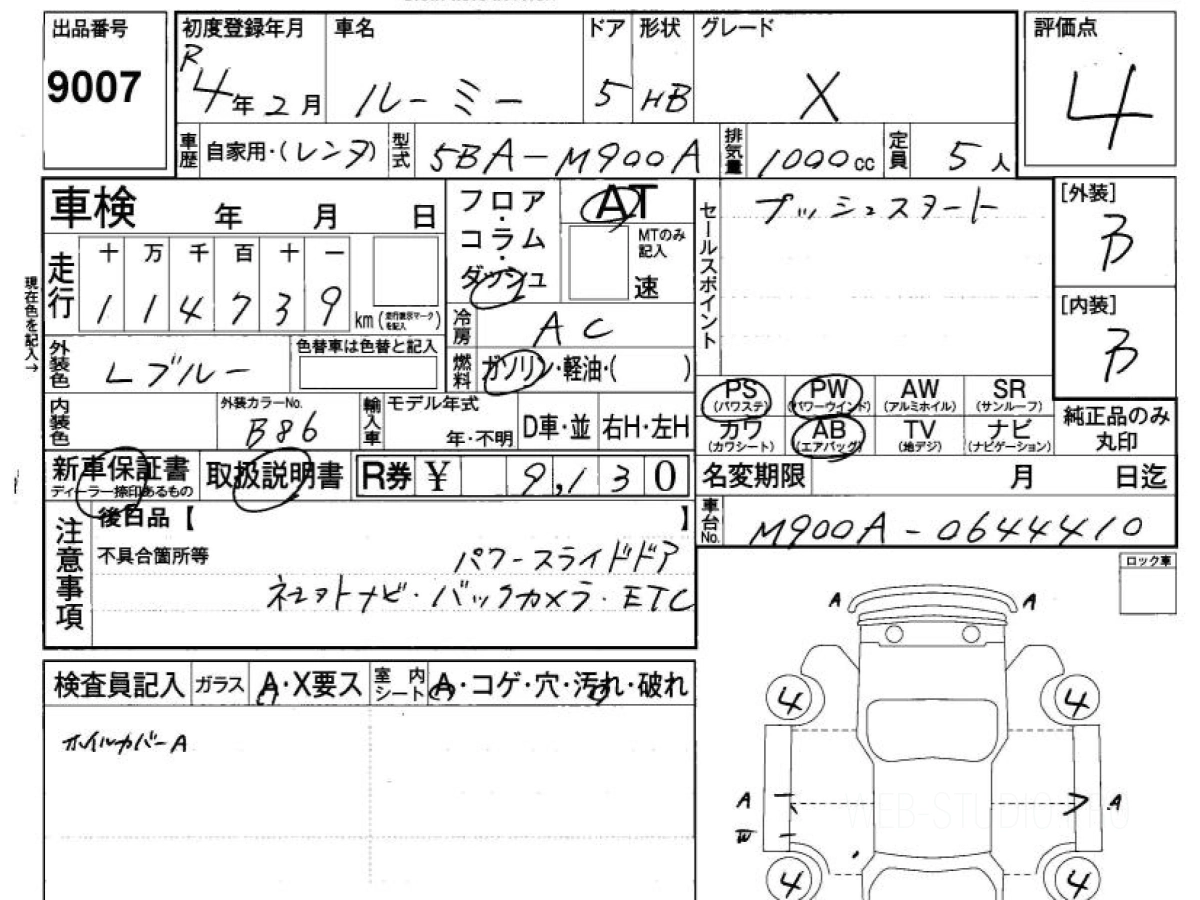 出品番号
9007
初度登録年月
R
4年2月
車名
ルーミー
ドア
5
形状
HB
グレード
X
評価点
4
車歴
自家用・(レンタ)
型式
5BA-M900A
排気量
1000cc
定員
5人
車検 年 月 日
走行
十 万 千 百 十 一
1 1 4 7 3 9 km (走行表示マークを記入)
現在色を記入→
外装色
Lブルー
色替車は色替と記入
内装色
外装カラーNo.
B86
輸入車
モデル年式
年・不明
D車・並
右H・左H
フロア
・
コラム
・
ダッシュ
AT
MTのみ記入
速
冷房
AC
燃料
ガソリン・軽油・( )
セールスポイント
プッシュスタート
[外装]
B
[内装]
B
PS
(パワステ)
PW
(パワーウインド)
AW
(アルミホイル)
SR
(サンルーフ)
カワ
(カワシート)
AB
(エアバッグ)
TV
(地デジ)
ナビ
(ナビゲーション)
純正品のみ
丸印
新車保証書
ディーラー捺印あるもの
取扱説明書
R券 ¥ 9,130
名変期限 月 日迄
車台No.
M900A-0644410
注意事項
後日品【 】
不具合箇所等
パワースライドドア
ネエアトナビ・バックカメラ・ETC
ロック車
検査員記入
ガラス
A・X要ス
室内
シート
A・コゲ・穴・汚れ・破れ
ホイルカバーA
A A
4 4
A A
W
4 4
WEB-STUDIO.PRO